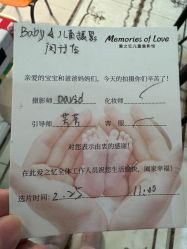 Baby & 儿童摄影
Memories of Love
爱之忆儿童摄影馆
亲爱的宝宝和爸爸妈妈们，今天的拍摄你们辛苦了！
摄影师 David 化妆师
引导师 芳芳 客服
对您表示由衷的感谢！
在此爱之忆全体工作人员祝您生活愉快，阖家幸福！
选片时间：2.25 11:00